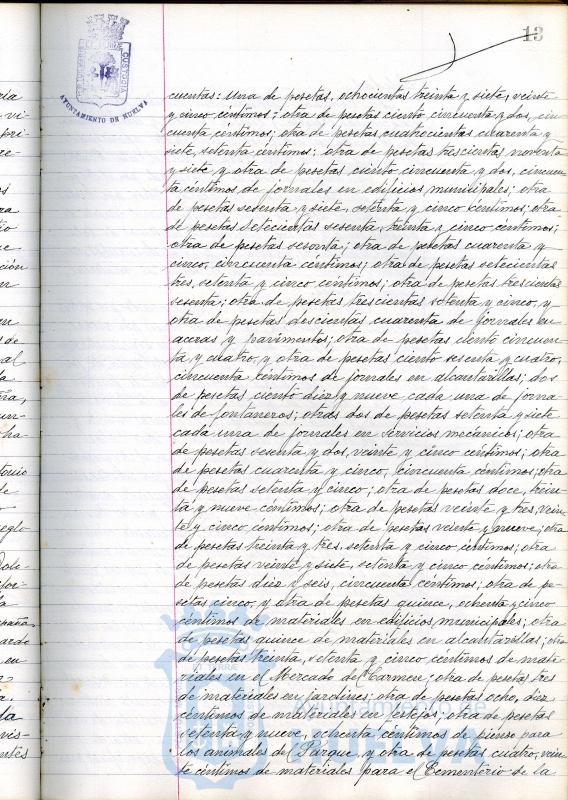 13
AYUNTAMIENTO DE HUELVA
CUSTODIA
cuentas: una de pesetas, ochocientas treinta y siete, veinte
y cinco céntimos; otra de pesetas ciento cincuenta y dos, cin-
cuenta céntimos; otra de pesetas, cuatrocientas cuarenta y
siete, setenta céntimos; otra de pesetas trescientas noventa
y siete y otra de pesetas ciento cincuenta y dos, cincuen-
ta céntimos de jornales en edificios municipales; otra
de pesetas sesenta y siete, setenta y cinco céntimos; otra
de pesetas setecientas sesenta, treinta y cinco céntimos;
otra de pesetas sesenta; otra de pesetas cuarenta y
cinco, cincuenta céntimos; otra de pesetas setecientas
tres, setenta y cinco céntimos; otra de pesetas trescientas
sesenta; otra de pesetas trescientas setenta y cinco, y
otra de pesetas doscientas cuarenta de jornales en
aceras y pavimentos; otra de pesetas ciento cincuen-
ta y cuatro, y otra de pesetas ciento sesenta y cuatro,
cincuenta céntimos de jornales en alcantarillas; dos
de pesetas ciento diez y nueve cada una de jorna-
les de fontaneros; otras dos de pesetas setenta y siete
cada una de jornales en servicios mecánicos; otra
de pesetas sesenta y dos, veinte y cinco céntimos; otra
de pesetas cuarenta y cinco, cincuenta céntimos; otra
de pesetas setenta y cinco; otra de pesetas doce, trein-
ta y nueve céntimos; otra de pesetas veinte y tres, vein-
te y cinco céntimos; otra de pesetas veinte y nueve; otra
de pesetas treinta y tres, setenta y cinco céntimos; otra
de pesetas veinte y siete, setenta y cinco céntimos; otra
de pesetas diez y seis, cincuenta céntimos; otra de pe-
setas cinco, y otra de pesetas quince, ochenta y cinco
céntimos de materiales en edificios municipales; otra
de pesetas quince de materiales en alcantarillas; otra
de pesetas treinta, setenta y cinco céntimos de mate-
riales en el Mercado del Carmen; otra de pesetas tres
de materiales en jardines; otra de pesetas ocho, diez
céntimos de materiales en festejos; otra de pesetas
setenta y nueve, ochenta céntimos de pienso para
los animales del Parque, y otra de pesetas cuatro, vein-
te céntimos de materiales para el Cementerio de la
Ayuntamiento de